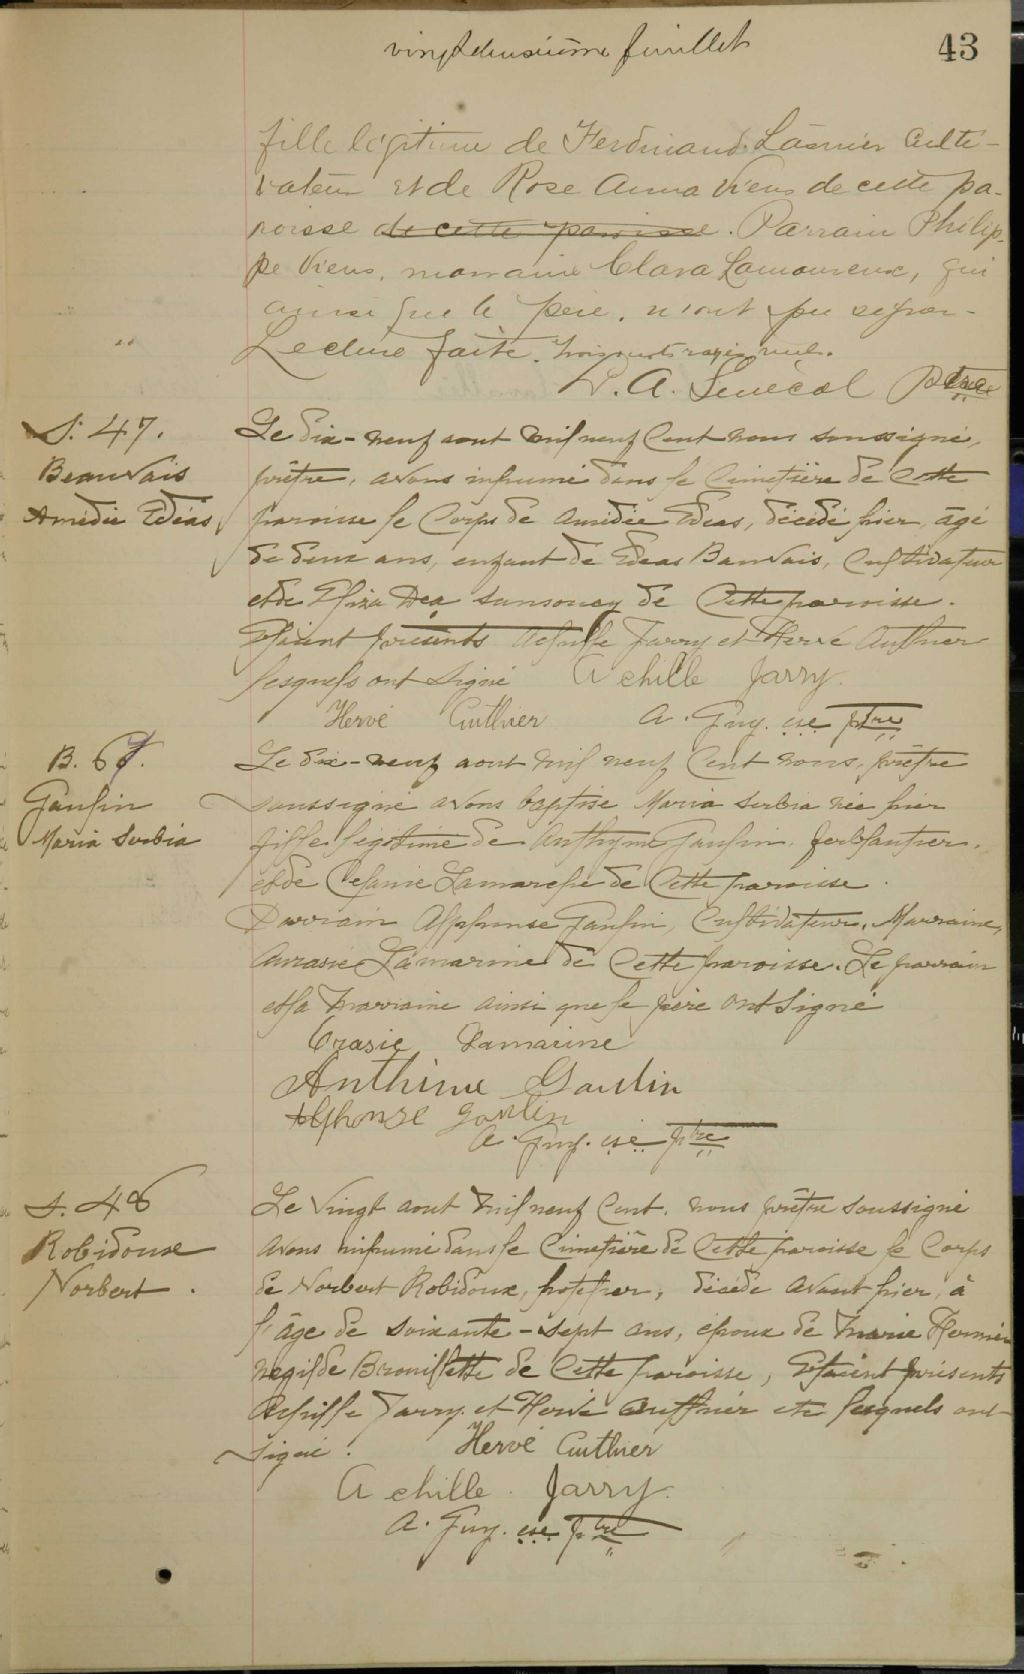 vingtdeuxième feuillet
43
fille légitime de Ferdinand Lasnier Culti-
vateur et de Rose Anna Viens de cette pa-
roisse de cette paroisse. Parrain Philip-
pe Viens, marraine Clara Lamoureux, qui
ainsi que le père, n'ont pu signer.
Lecture faite. Trois mots rayés nuls.
A. Senécal ptre
S. 47.
Beauvais
Amédée Edéas
Le dix-neuf aout mil neuf Cent nous soussigné,
prêtre, avons inhumé dans le Cimetière de Cette
paroisse le Corps de Amédée Edeas, décédé hier, âgé
de deux ans, enfant de Edeas Bauvais, Cultivateur
et de Eliza Dea Sansoucy de Cette paroisse.
Etaient présents Achille Jarry et Hervé Authier
lesquels ont signé Achille Jarry.
Hervé Authier A. Guy. ptre
B. 67.
Gaulin
Maria Serbia
Le dix-neuf aout mil neuf Cent nous, prêtre
soussigné avons baptisé Maria Serbia née hier
fille légitime de Anthyme Gaulin, ferblantier,
et de Lamarche de Cette paroisse.
Parrain Alphonse Gaulin, Cultivateur, Marraine,
Aurasie Lamarine de Cette paroisse. Le parrain
et la marraine ainsi que le père ont signé
Orasie Lamarine
Anthime Gaulin
Alphonse Gaulin
A. Guy. ptre
S. 48
Robidoux
Norbert.
Le Vingt aout mil neuf Cent, nous prêtre soussigné
avons inhumé dans le Cimetière de Cette paroisse le Corps
de Norbert Robidoux, hotelier, décédé avant hier, à
l'âge de soixante-sept ans, époux de Marie Hermé-
negilde Brouillette de Cette paroisse, Etaient présents
Achille Jarry et Hervé Authier etc lesquels ont
signé. Hervé Authier
Achille Jarry.
A. Guy. ptre